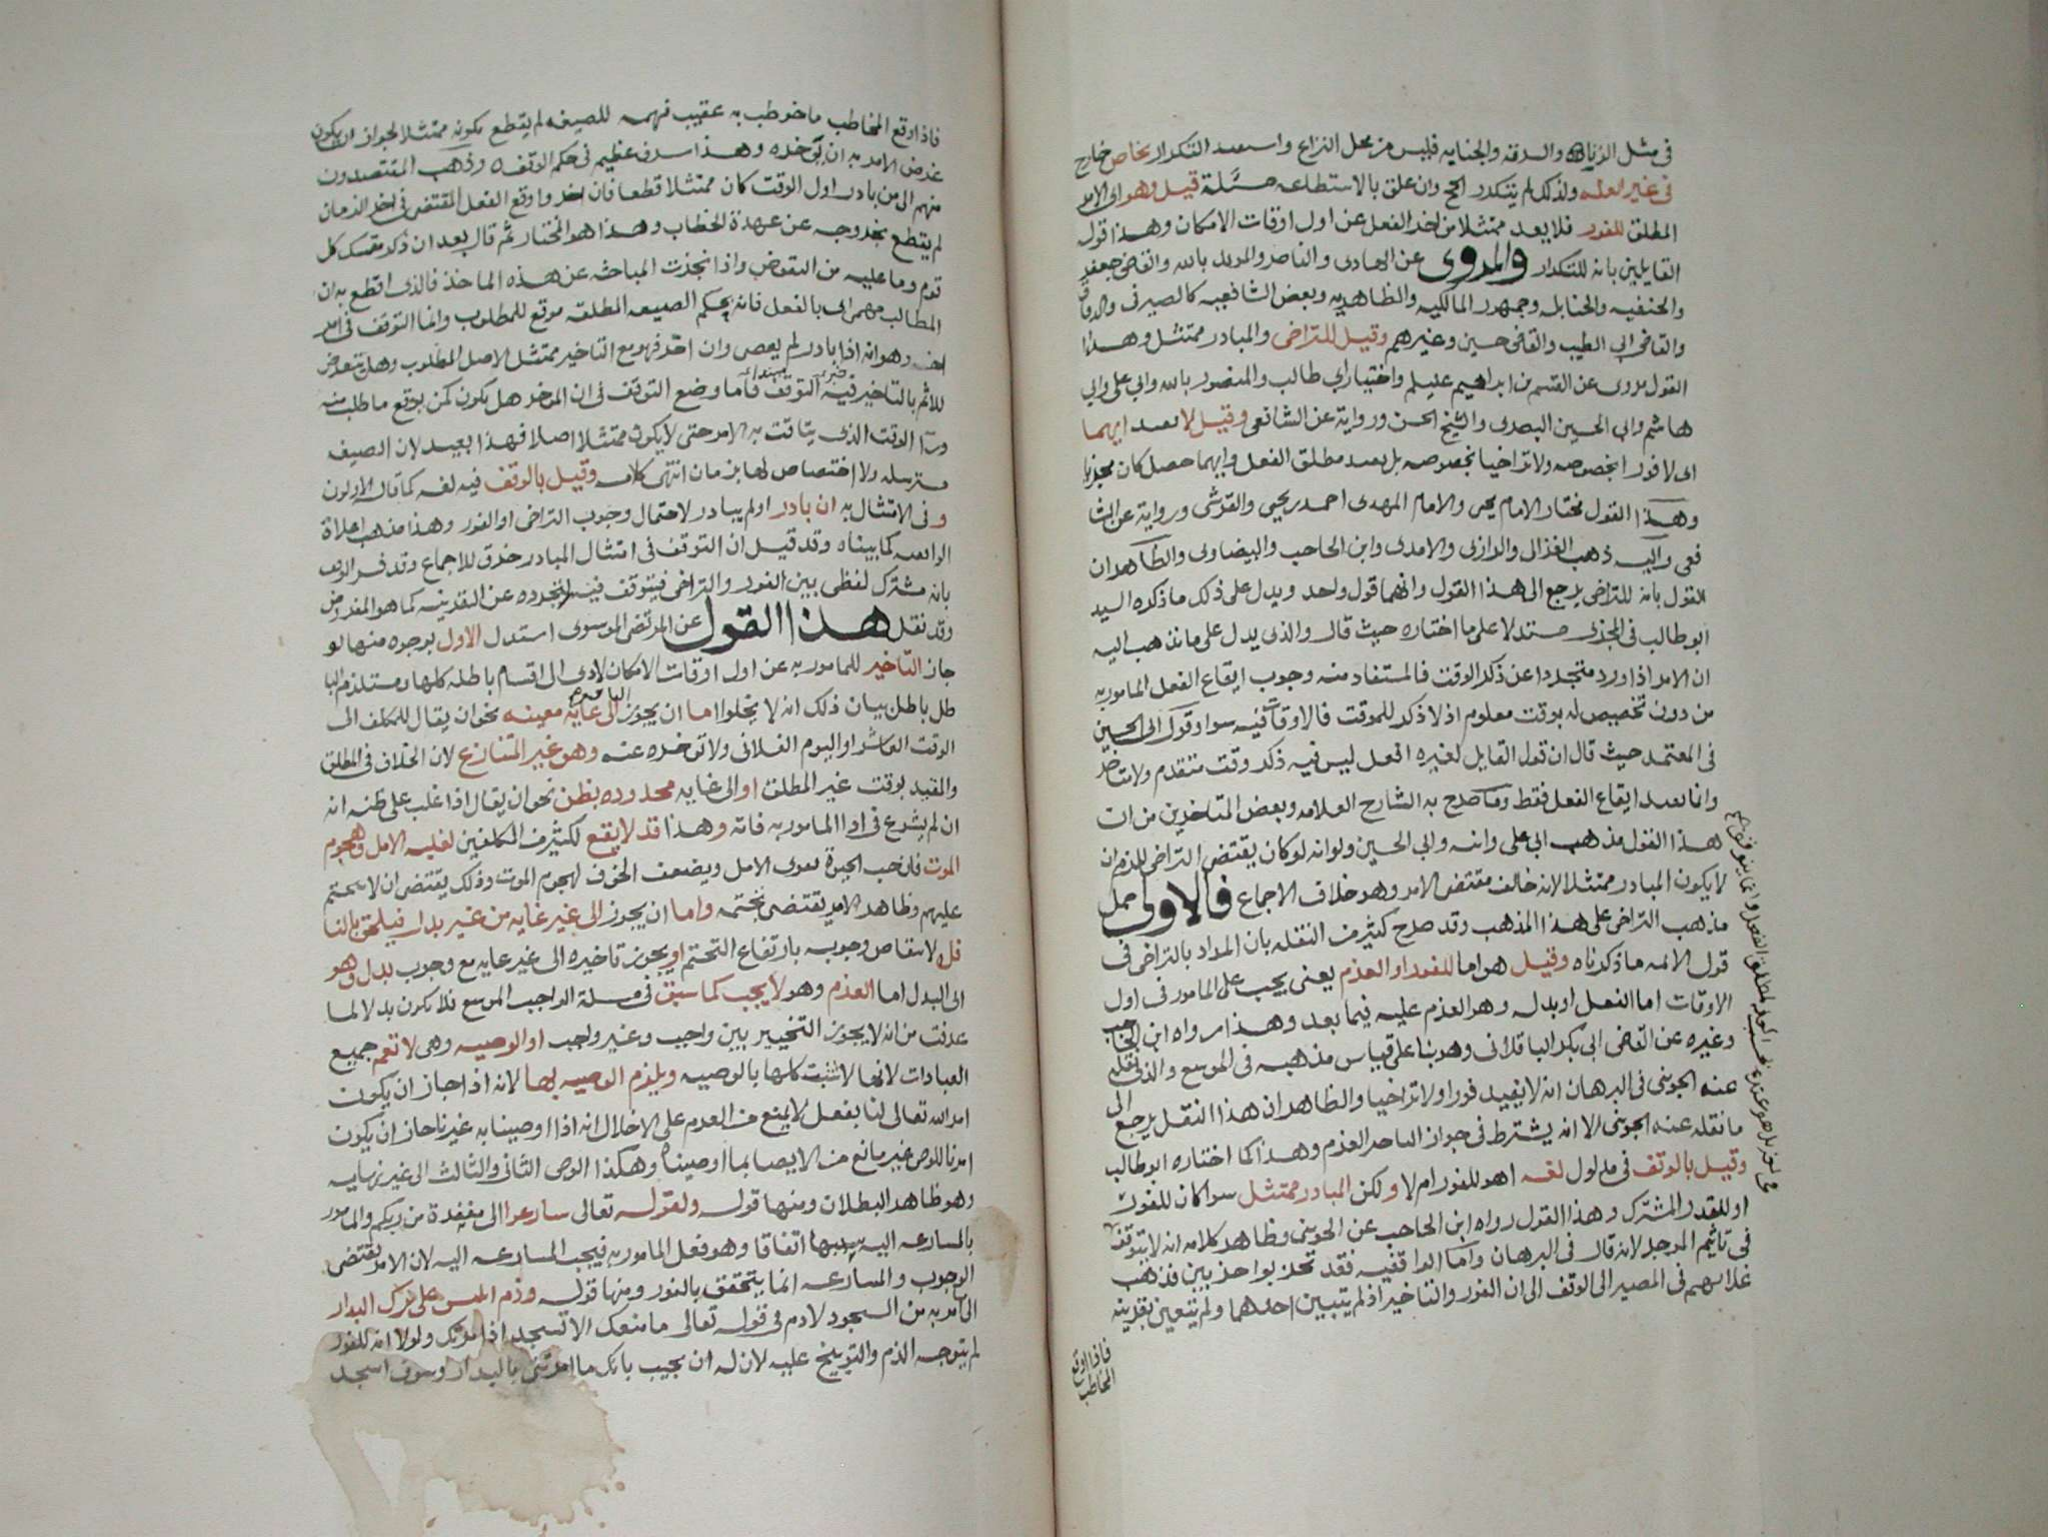 في مثل الزنا والسرقه والجنايه فليس من محل النزاع واستفيد التكرار بخاص خارج
في غير العله ولذلك لم يتكرر الحج وان علق بالاستطاعه مسئلة قيل وهو اى الامر
المطلق للفور فلا يعد ممتثلا من اخر الفعل عن اول اوقات الامكان وهذا قول
القايلين بانه للتكرار والمروى عن الهادى والناصر والمويد بالله والقاضى جعفر
والحنفيه والحنابله وجمهور المالكيه والظاهريه وبعض الشافعيه كالصيرفى والدقاق
والقاضى ابى الطيب والقاضى حسين وغيرهم وقيل للتراخى والمبادر ممتثل وهذا
القول مروى عن القسم بن ابراهيم عليلم واختيار ابى طالب والمنصور بالله وابى على وابى
هاشم وابى الحسين البصرى والشيخ الحسن ورواية عن الشافعى وقيل لا يفيد ايهما
اى لا فورا بخصوصه ولا تراخيا بخصوصه بل يفيد مطلق الفعل وايهما حصل كان مجزيا
وهذا القول مختار الامام يحيى والامام المهدى احمد بن يحيى والقرشى ورواية عن الشا
فعى واليه ذهب الغزالى والرازى والامدى وابن الحاجب والبيضاوى والظاهر ان
القول بانه للتراخى يرجع الى هذا القول وانهما قول واحد ويدل على ذلك ما ذكره السيد
ابو طالب فى المجزى مستدلا على ما اختاره حيث قال والذى يدل على ما نذهب اليه
ان الامر اذا ورد متجردا عن ذكر الوقت فالمستفاد منه وجوب ايقاع الفعل المامور به
من دون تخصيص له بوقت معلوم اذ لا ذكر للوقت فالاوقات فيه سوا وقول ابى الحسين
فى المعتمد حيث قال ان قول القايل لغيره افعل ليس فيه ذكر وقت متقدم ولا متاخر
وانما يفيد ايقاع الفعل فقط وما صرح به الشارح العلامه وبعض المتاخرين من ان
هذا القول مذهب ابى على وابنه وابى الحسين ولو انه لو كان يقتضى التراخى للزم ان
لا يكون المبادر ممتثلا لانه خالف مقتضى الامر وهو خلاف الاجماع فالاولى حمل
مذهب التراخى على هذا المذهب وقد صرح كثير من النقله بان المراد بالتراخى فى
قول الائمه ما ذكرناه وقيل هو اما للفور او العزم يعنى يجب على المامور فى اول
الاوقات اما الفعل او بدله وهو العزم عليه فيما بعد وهذا رواه ابن الحاجب
وغيره عن القاضى ابى بكر الباقلانى وهو بنا على قياس مذهبه فى الموسع والذى نقله
عنه الجوينى فى البرهان انه لا يفيد فورا ولا تراخيا والظاهر ان هذا النقل يرجع الى
ما نقله عنه الجوينى الا انه يشترط فى جواز التاخر العزم وهذا كما اختاره ابو طالب
وقيل بالوقف فى مدلول لغه اهو للفور ام لا ولكن المبادر ممتثل سوا كان للفور
او للقدر المشترك وهذا القول رواه ابن الحاجب عن الجوينى وظاهر كلامه انه لا يتوقف
فى تاثيم الموجل لانه قال فى البرهان واما الواقفيه فقد تحزبوا حزبين فذهب
غلاتهم فى المصير الى الوقف الى ان الفور والتاخير اذ لم يتبين احدهما ولم يتعين بقرينه
فاذا اوقع
المخاطب
فاذا اوقع المخاطب ما خوطب به عقيب فهمه للصيغه لم يقطع بكونه ممتثلا لجواز ان يكون
غرض الامر به ان يوخره وهذا سرف عظيم فى حكم الوقف وذهب المقتصدون
منهم الى من بادر اول الوقت كان ممتثلا قطعا فان اخر واوقع الفعل المقتضى فى اخر الزمان
لم يقطع بخروجه عن عهدة الخطاب وهذا هو المختار ثم قال بعد ان ذكر متمسك كل
قوم وما عليه من النقوض واذا نجزت المباحثه عن هذه الماخذ فالذى اقطع به ان
المطالب مهما اتى بالفعل فانه بحكم الصيغه المطلقه موقع للمطلوب وانما التوقف فى امر
اخر وهو انه اذا بادر لم يعص وان اخر فهو مع التاخير ممتثل لاصل المطلوب وهل يتعرض
للاثم بالتاخير فيه التوقف فاما وضع التوقف فى ان الموخر هل يكون كمن يوقع ما طلب منه
ورا الوقت الذى يتاقت به الامر حتى لا يكون ممتثلا اصلا فهذا بعيد لان الصيغه
مسترسله ولا اختصاص لها بزمان انتهى كلامه وقيل بالوقف فيه لغه كما قال الاولون
وفى الامتثال به ان بادر او لم يبادر لاحتمال وجوب التراخى او الفور وهذا مذهب غلاة
الواقفيه كما بيناه وقد قيل ان التوقف فى امتثال المبادر خرق للاجماع وقد فسر الوقف
بانه مشترك لفظى بين الفور والتراخى فيتوقف فيه لتجرده عن القرينه كما هو المفروض
وقد نقل هذا القول عن المرتضى الموسوى استدل الاول بوجوه منها لو
جاز التاخير للمامور به عن اول اوقات الامكان لادى الى اقسام باطله كلها ومستلزم البا
طل باطل بيان ذلك انه لا يخلوا اما ان يجوز الى غاية معينه نحو ان يقال للمكلف الى
الوقت العاشر او اليوم الفلانى ولا توخره عنه وهو غير المتنازع لان الخلاف فى المطلق
والمقيد بوقت غير المطلق او الى غايه محدوده بظن نحو ان يقال اذا غلب على ظنه انه
ان لم يشرع فى ادا المامور به فاته وهذا قد لا يقع لكثير من المكلفين لغلبه الامل وهجوم
الموت فان حب الحيوة يقوى الامل ويضعف الخوف لهجوم الموت وذلك يقتضى ان لا يتحتم
عليهم وظاهر الامر يقتضى تحتمه واما ان يجوز الى غير غايه من غير بدل فيلحق بالنا
فل لانتقاص وجوبه بارتفاع التحتم او يجوز تاخيره الى غير غايه مع وجوب بدل وهو
اى البدل اما العزم وهو لا يجب كما سبق فى مسئلة الواجب الموسع فلا يكون بدلا لما
عرفت من انه لا يجوز التخيير بين واجب وغير واجب او الوصيه وهى لا تعم جميع
العبادات لانها لا تثبت كلها بالوصيه ويلزم الوصيه بها لانه اذا جاز ان يكون
امر الله تعالى لنا بفعل لا يمنع من العزم على الاخلال انه اذا اوصينا به غيرنا جاز ان يكون
امرنا للوصى غير مانع من الايصا بما اوصيناه وهكذا الوصى الثانى والثالث الى غير نهايه
وهو ظاهر البطلان ومنها قوله ولقوله تعالى سارعوا الى مغفرة من ربكم والمامور
بالمسارعه اليه سببها اتفاقا وهو فعل المامور به فيجب المسارعه اليه لان الامر يقتضى
الوجوب والمسارعه انما يتحقق بالفور ومنها قوله وذم ابليس على ترك البدار
الى ما امر به من السجود لادم فى قوله تعالى ما منعك الا تسجد اذ امرتك ولولا انه للفور
لم يتوجه الذم والتوبيخ عليه لان له ان يجيب بانك ما امرتنى بالبدار وسوف اسجد